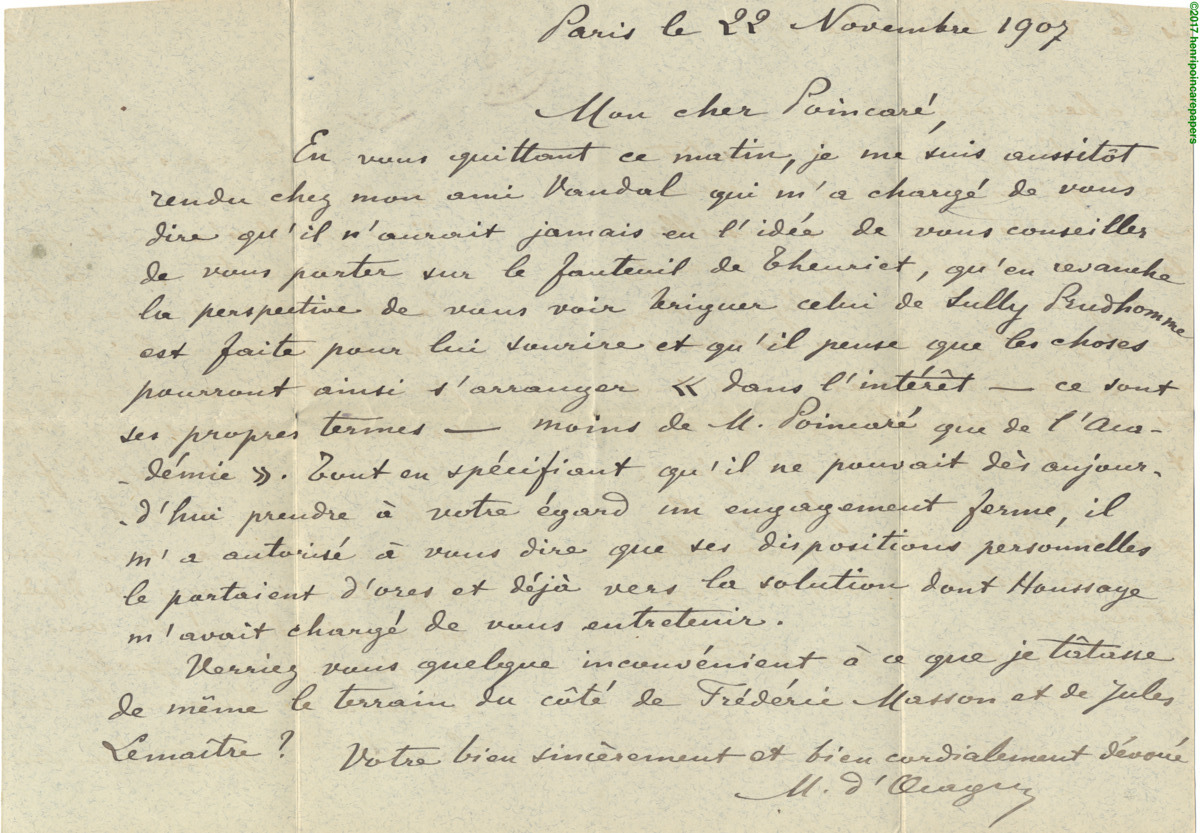 Paris le 22 Novembre 1907
Mon cher Poincaré,
En vous quittant ce matin, je me suis aussitôt
rendu chez mon ami Vandal qui m'a chargé de vous
dire qu'il n'aurait jamais eu l'idée de vous conseiller
de vous porter sur le fauteuil de Theuriet, qu'en revanche
la perspective de vous voir briguer celui de Sully Prudhomme
est faite pour lui sourire et qu'il pense que les choses
pourront ainsi s'arranger « dans l'intérêt — ce sont
ses propres termes — moins de M. Poincaré que de l'Aca-
-démie ». Tout en spécifiant qu'il ne pouvait dès aujour-
-d'hui prendre à votre égard un engagement ferme, il
m'a autorisé à vous dire que ses dispositions personnelles
le portaient d'ores et déjà vers la solution dont Houssaye
m'avait chargé de vous entretenir.
Verriez vous quelque inconvénient à ce que je tâtasse
de même le terrain du côté de Frédéric Masson et de Jules
Lemaître ?
Votre bien sincèrement et bien cordialement dévoué
M. d'Ocagne
©2017 henripoincarepapers